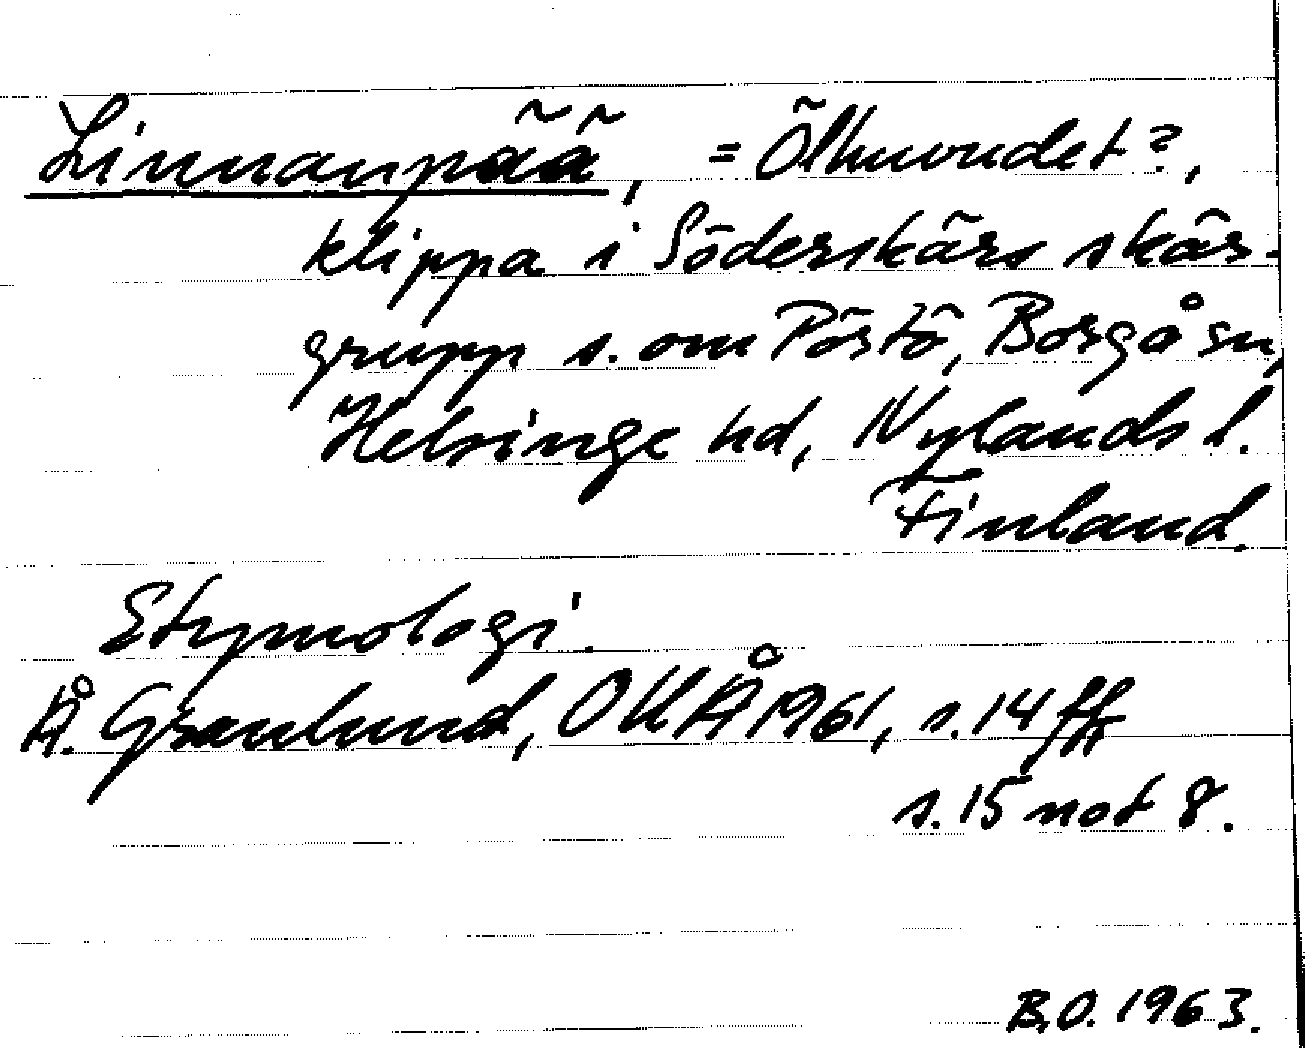 Linnanpää, = Ölhuvudet?,
klippa i Söderskärs skär-
grupp s. om Pörtö, Borgå sn,
Helsinge hd, Nylands l.
Finland.
Etymologi.
Å. Granlund, OUÅ 1961, s. 14 ff
s. 15 not 8.
B.O. 1963.